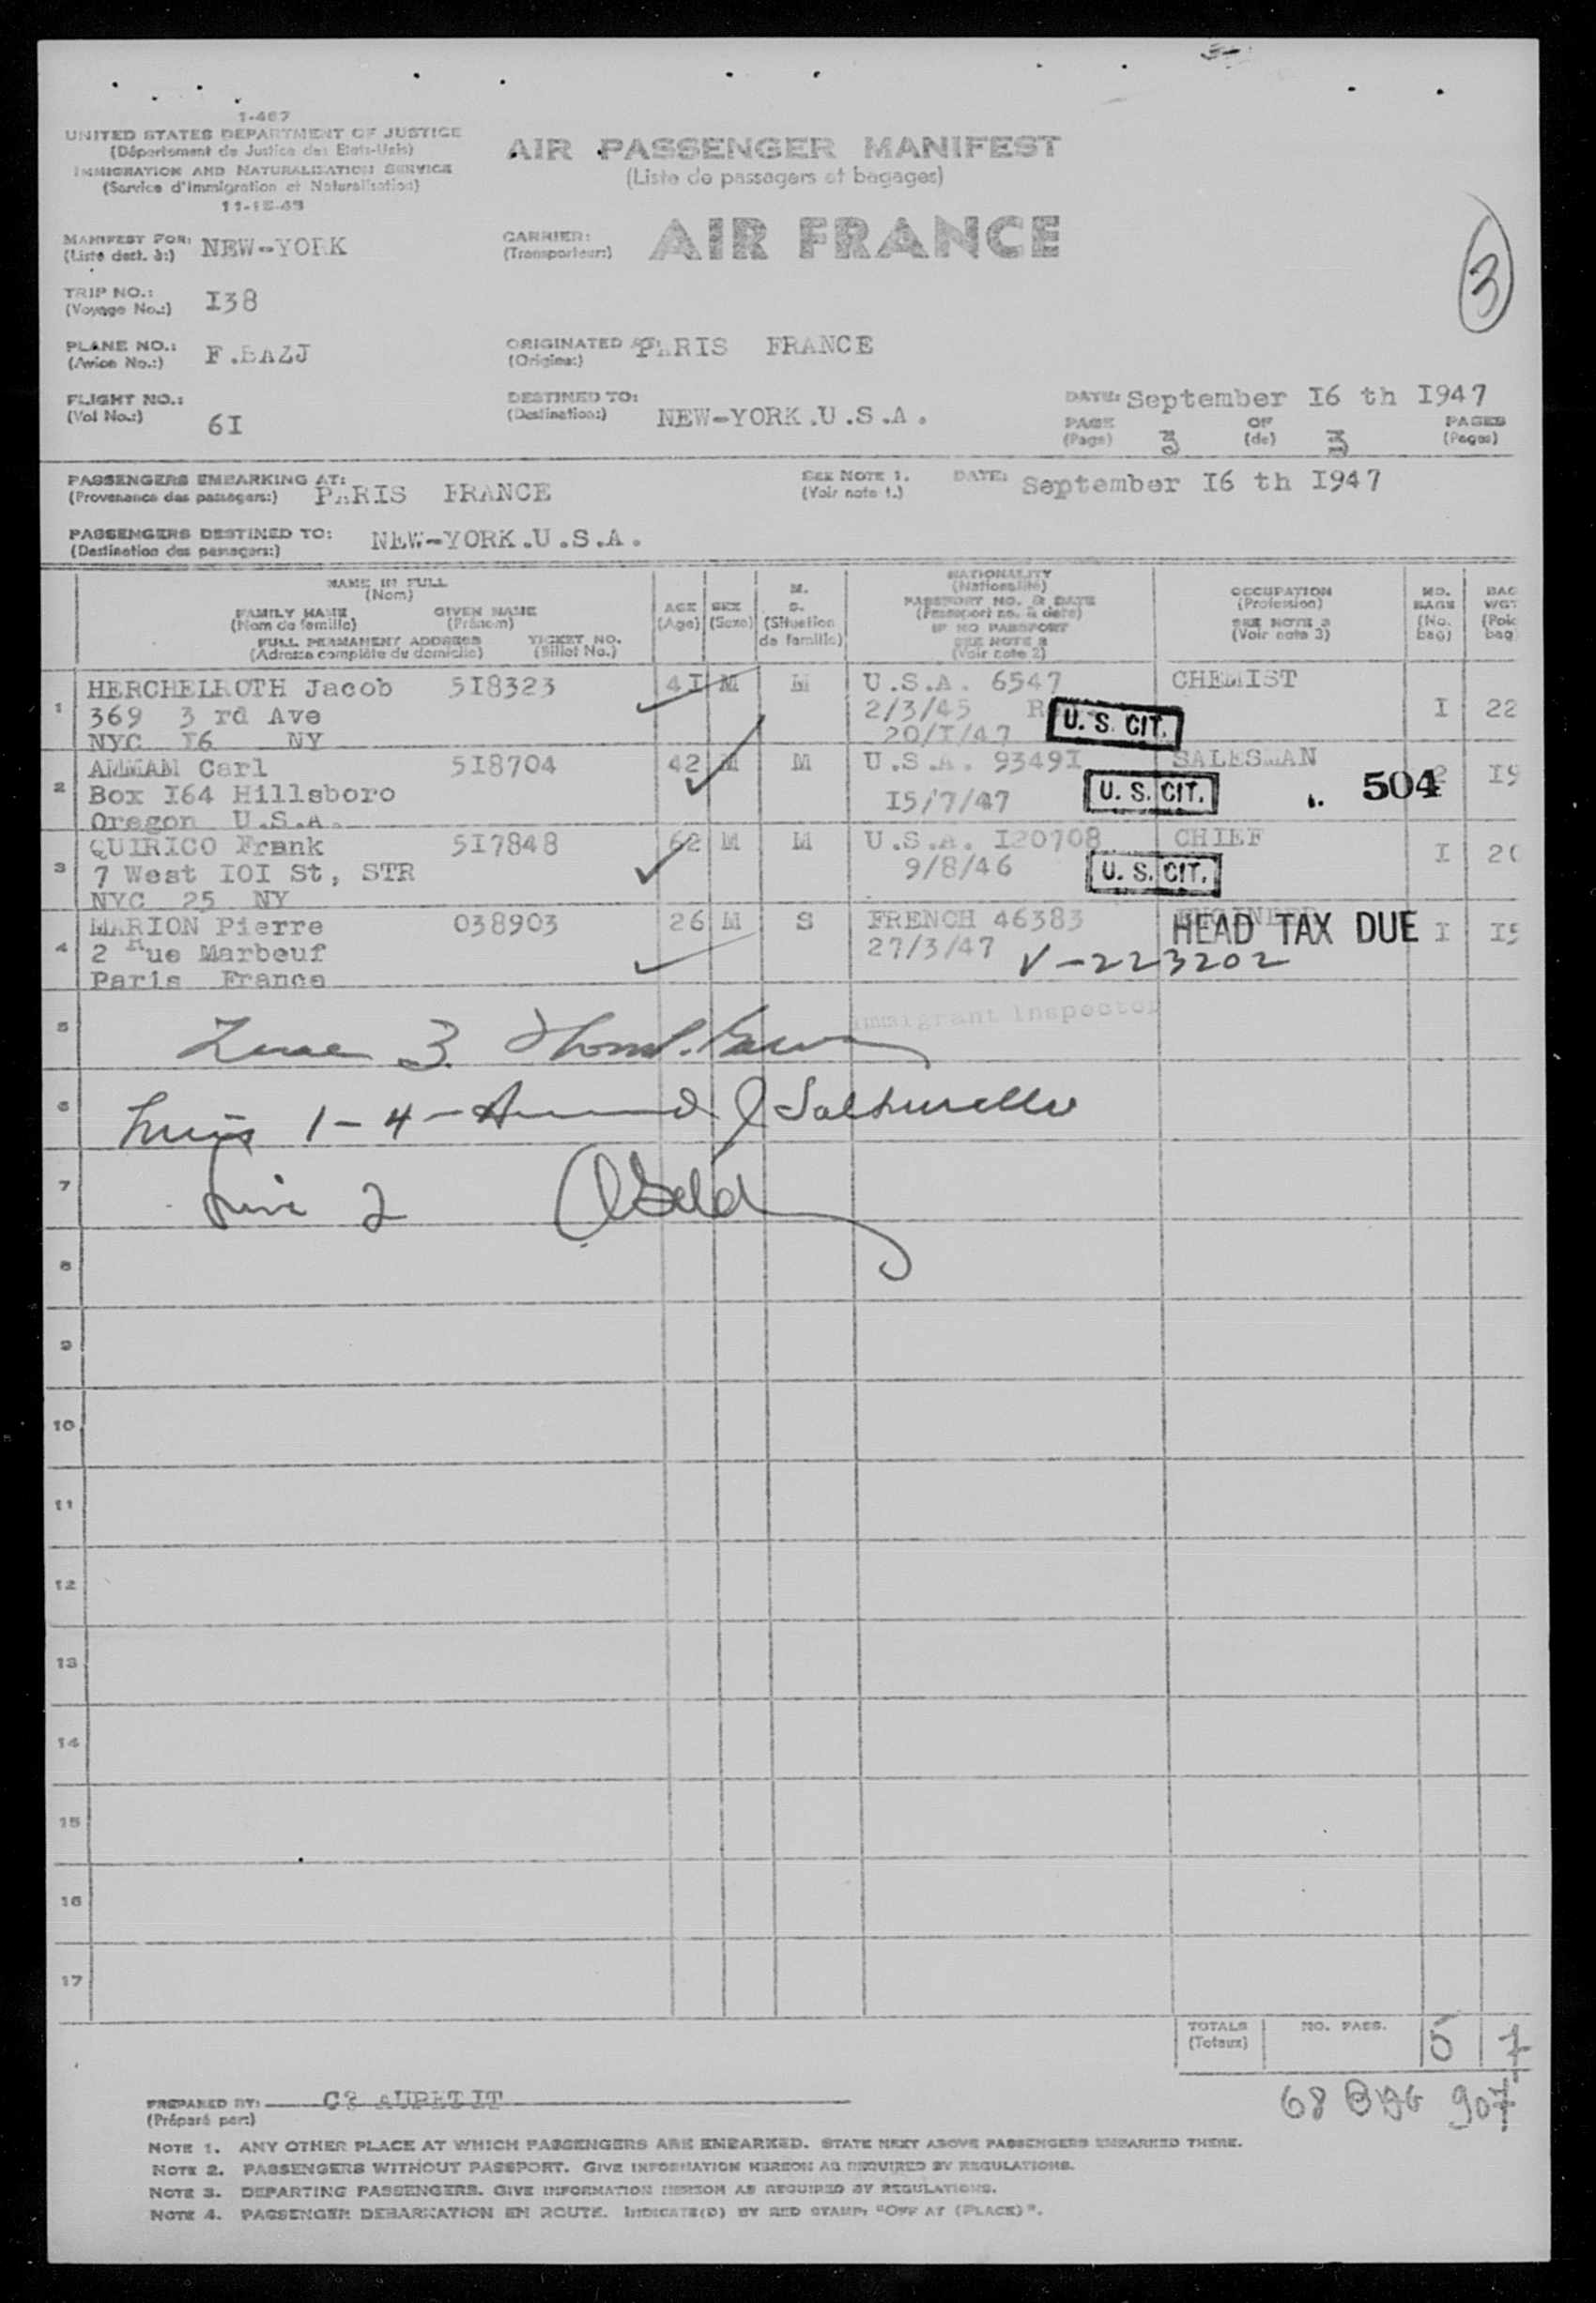 1-467
UNITED STATES DEPARTMENT OF JUSTICE
(Département de Justice des Etats-Unis)
IMMIGRATION AND NATURALISATION SERVICE
(Service d'Immigration et Naturalisation)
AIR PASSENGER MANIFEST
(Liste de passagers et bagages)
MANIFEST FOR: NEW-YORK
(Liste dest. à:)
CARRIER: AIR FRANCE
(Transporteur:)
3
TRIP NO.: I38
(Voyage No.:)
PLANE NO.: F.BAZJ
(Avion No.:)
ORIGINATED PARIS FRANCE
(Origine:)
FLIGHT NO.: 6I
(Vol No.:)
DESTINED TO: NEW-YORK.U.S.A.
(Destination:)
DATE: September I6 th I947
PAGE 3 OF 3 PAGES
(Page) (de) (Pages)
PASSENGERS EMBARKING AT: PARIS FRANCE
(Provenance des passagers:)
SEE NOTE 1. DATE: September I6 th I947
(Voir note 1.)
PASSENGERS DESTINED TO: NEW-YORK.U.S.A.
(Destination des passagers:)
NAME IN FULL
(Nom)
FAMILY NAME GIVEN NAME
(Nom de famille) (Prénom)
FULL PERMANENT ADDRESS TICKET NO.
(Adresse complète du domicile) (Billet No.)
AGE
(Age)
SEX
(Sexe)
M.
S.
(Situation
de famille)
NATIONALITY
(Nationalité)
PASSPORT NO. & DATE
(Passeport no. & date)
IF NO PASSPORT
SEE NOTE 2
(Voir note 2)
OCCUPATION
(Profession)
SEE NOTE 3
(Voir note 3)
NO.
BAGS
(No.
bag)
BAG
WGT
(Poic
bag
1 HERCHELROTH Jacob 5I8323 4I M M U.S.A. 6547 CHEMIST I 22
369 3 rd Ave 2/3/45 R
NYC I6 NY 20/I/47 U. S. CIT.
2 AMMAN Carl 5I8704 42 M M U.S.A. 9349I SALESMAN I9
Box I64 Hillsboro I5/7/47 U. S. CIT. 504
Oregon U.S.A.
3 QUIRICO Frank 5I7848 62 M M U.S.A. I20708 CHIEF I 20
7 West IOI St, STR 9/8/46 U. S. CIT.
NYC 25 NY
4 MARION Pierre 038903 26 M S FRENCH 46383 ENGINEER HEAD TAX DUE I I5
2 Rue Marbeuf 27/3/47 V-223202
Paris France
5 Immigrant Inspector
3
6 1-4
7 2
8
9
10
11
12
13
14
15
16
17
TOTALS NO. PASS. 5
(Totaux)
68 BAG 907
PREPARED BY: AUPETIT
(Préparé par:)
NOTE 1. ANY OTHER PLACE AT WHICH PASSENGERS ARE EMBARKED. STATE NEXT ABOVE PASSENGERS EMBARKED THERE.
NOTE 2. PASSENGERS WITHOUT PASSPORT. GIVE INFORMATION HEREON AS REQUIRED BY REGULATIONS.
NOTE 3. DEPARTING PASSENGERS. GIVE INFORMATION HEREON AS REQUIRED BY REGULATIONS.
NOTE 4. PASSENGER DEBARKATION EN ROUTE. INDICATE(D) BY RED STAMP: "OFF AT (PLACE)".